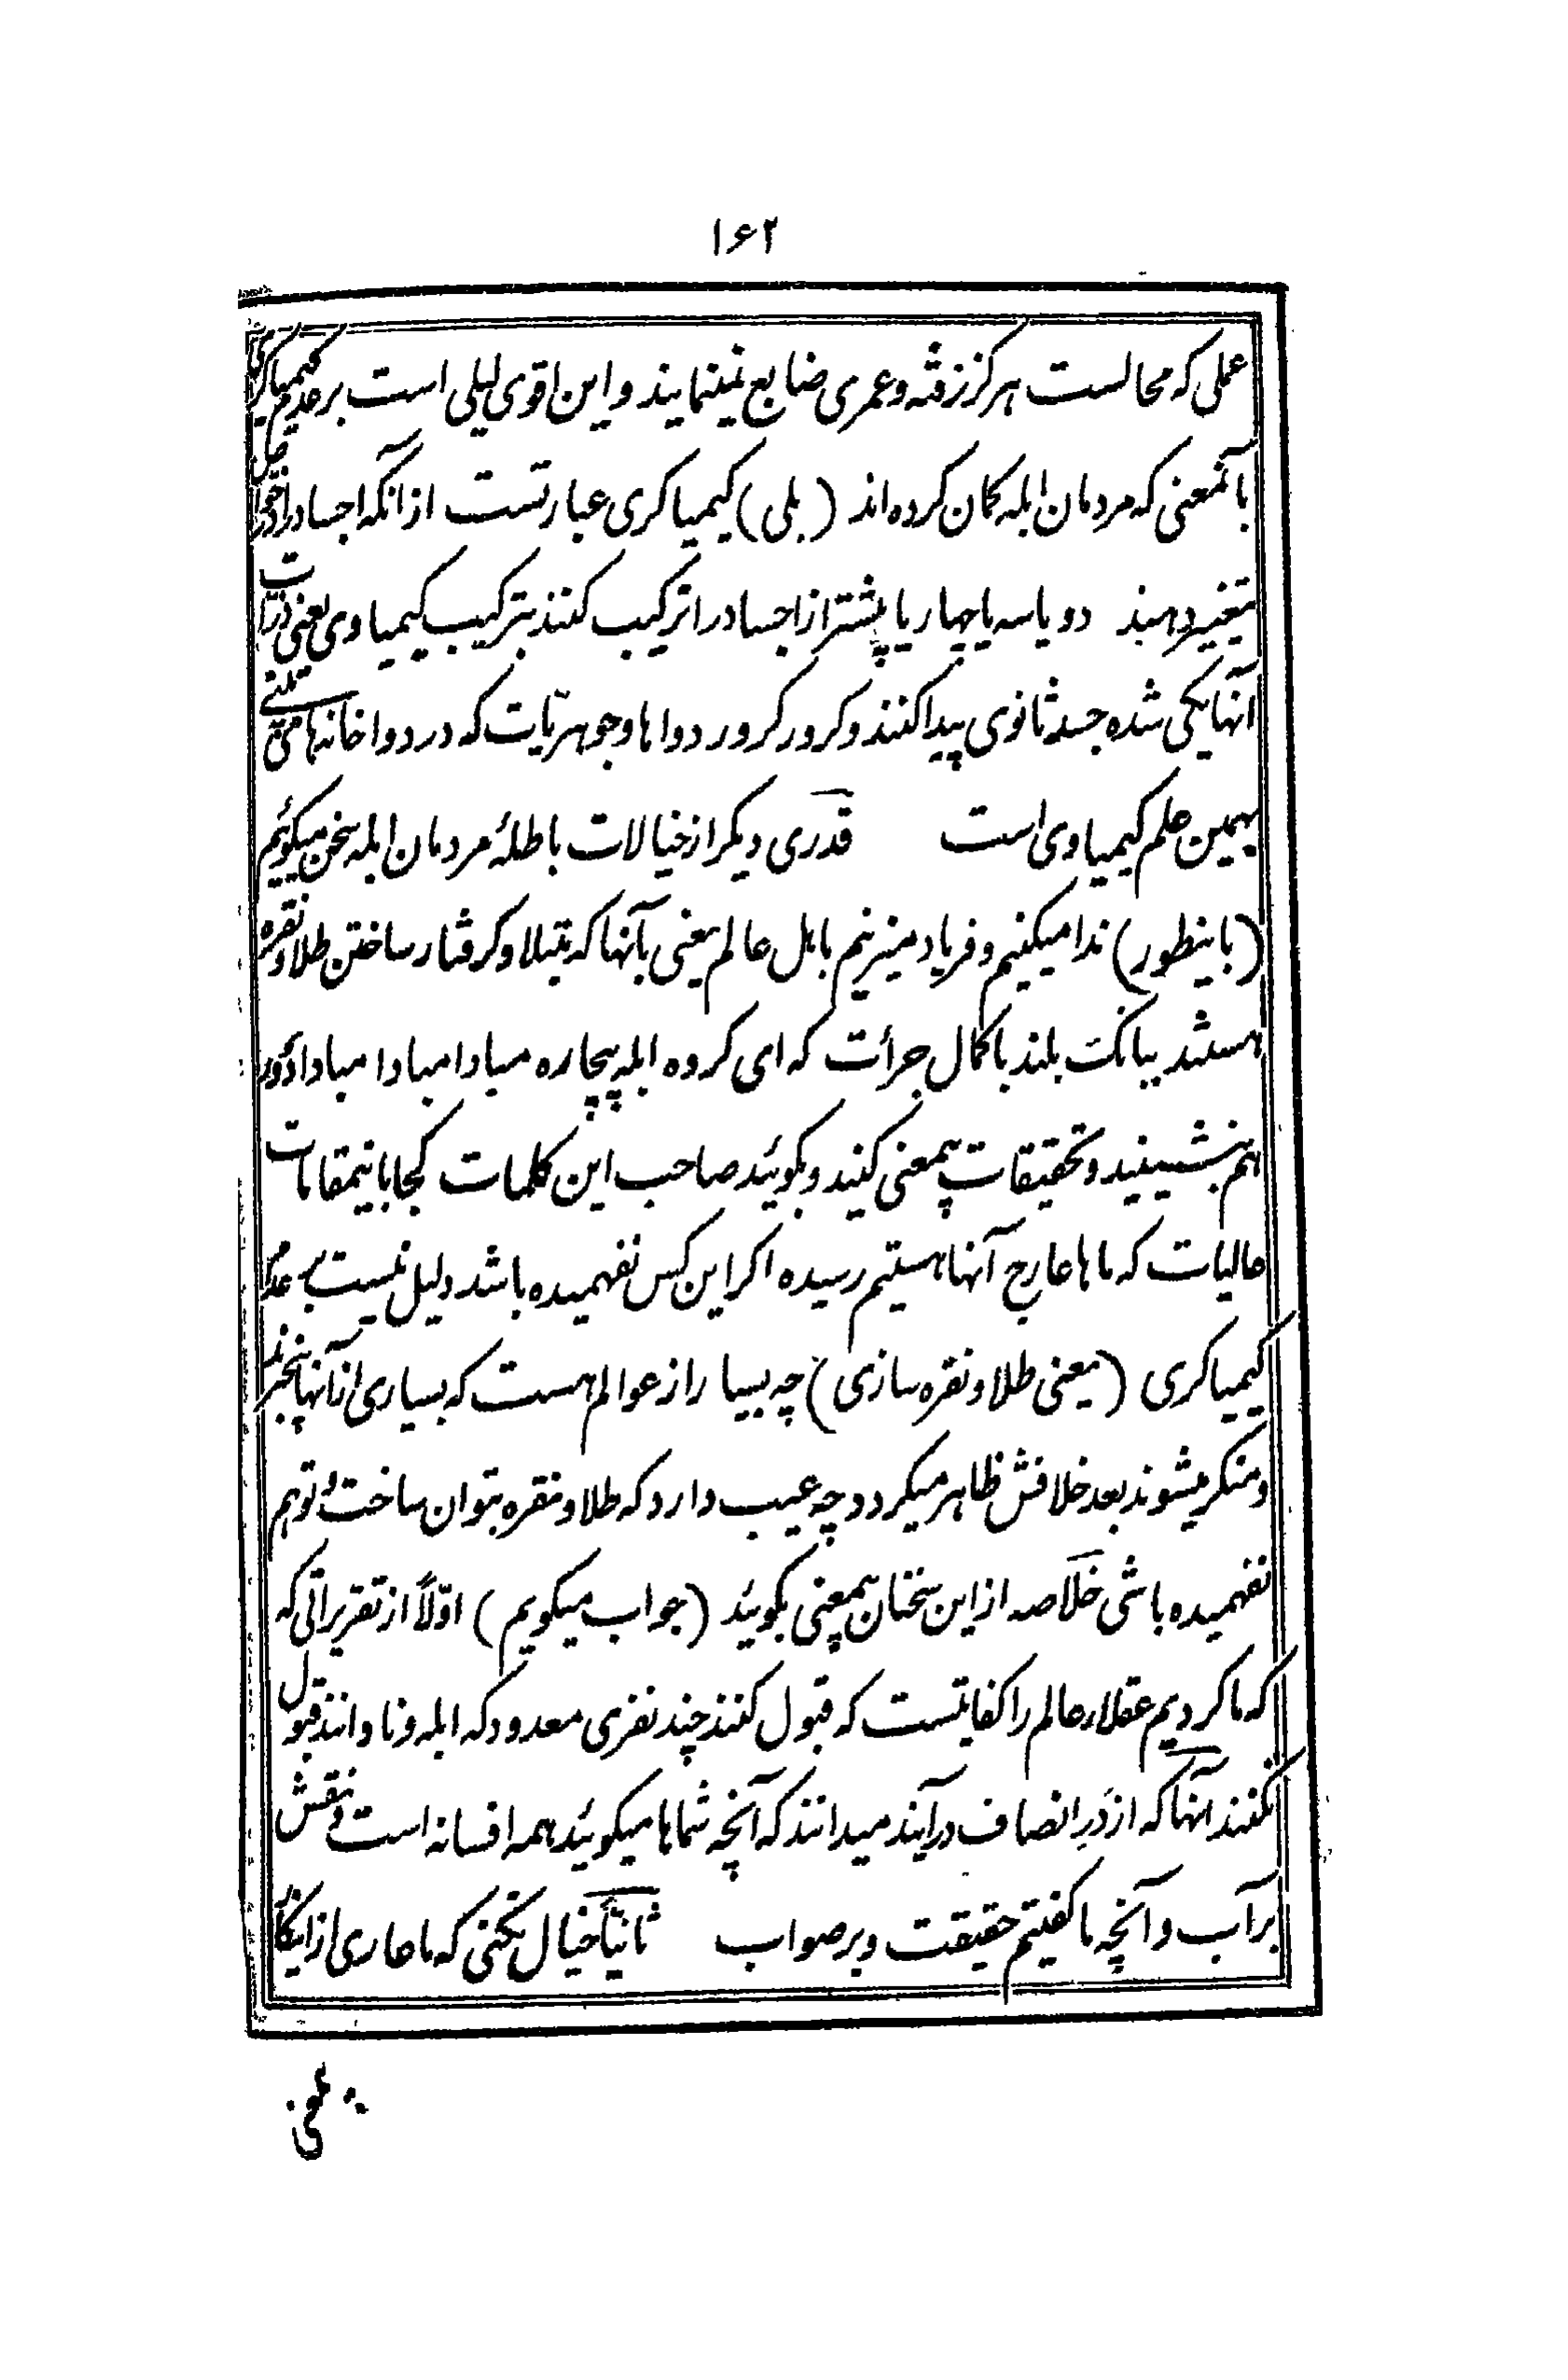 ۱۶۲
عملی که محالست هرکز نرفته و عمری ضایع نمینمایند و این اقوی دلیلی است بر عدم کیمیاکری
بآنمعنی که مردمان ابله کمان کرده‌اند (بلی) کیمیاکری عبارتست از آنکه اجساد را از خواص
تغییر دهند دو یا سه یا چهار یا بیشتر از اجساد را ترکیب کنند بترکیب کیمیاوی یعنی ذرات
آنها یکی شده جسد ثانوی پیدا کنند و کرور کرور دواها و جوهریات که در دواخانه‌ها
بهمین علم کیمیاوی است قدری دیکر از خیالات باطلهٔ مردمان ابله سخن میکوئیم
(باینطور) ندا میکنیم و فریاد میزنیم باهل عالم یعنی بآنها که مبتلا و کرفتار ساختن طلا و نقره
هستند ببانک بلند با کمال جرأت که ای کروه ابله بیچاره مبادا مبادا مبادا دور
هم بنشینید و تحقیقات بیمعنی کنید و بکوئید صاحب این کلمات کجا باینمقامات
عالیات که ماها عارج آنها هستیم رسیده اکر این کس نفهمیده باشد دلیل نیست بر عدم
کیمیاکری (یعنی طلا و نقره سازی) چه بسیار از عوالم هست که بسیاری از آنها بیخبرند
و منکر میشوند بعد خلافش ظاهر میکردد چه عیب دارد که طلا و نقره بتوان ساخت و تو هم
نفهمیده باشی خلاصه از این سخنان بیمعنی بکوئید (جواب میکویم) اوّلاً از تقریراتی که
که ما کردیم عقلاء عالم را کفایتست که قبول کنند چند نفری معدود که ابله و نادانند قبول
نکنند آنها که از دَرِ انصاف درآیند میدانند که آنچه شماها میکوئید همه افسانه است و نقش
بر آب و آنچه ما کفتیم حقیقت و بر صواب ثانیاً خیال نکنی که ما عاری از اینکار